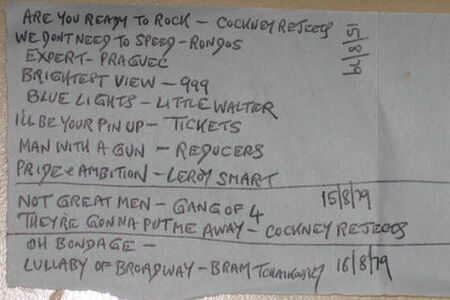 ARE YOU READY TO ROCK - COCKNEY REJECTS
WE DONT NEED TO SPEED - RONDOS
EXPERT - PRAGVEC
BRIGHTEST VIEW - 999
BLUE LIGHTS - LITTLE WALTER
I'LL BE YOUR PIN UP - TICKETS
MAN WITH A GUN - REDUCERS
PRIDE & AMBITION - LEROY SMART
15/8/79
NOT GREAT MEN - GANG OF 4 15/8/79
THEY'RE GONNA PUT ME AWAY - COCKNEY REJECTS
OH BONDAGE -
LULLABY OF BROADWAY - BRAM TCHAIKOVSKY 16/8/79